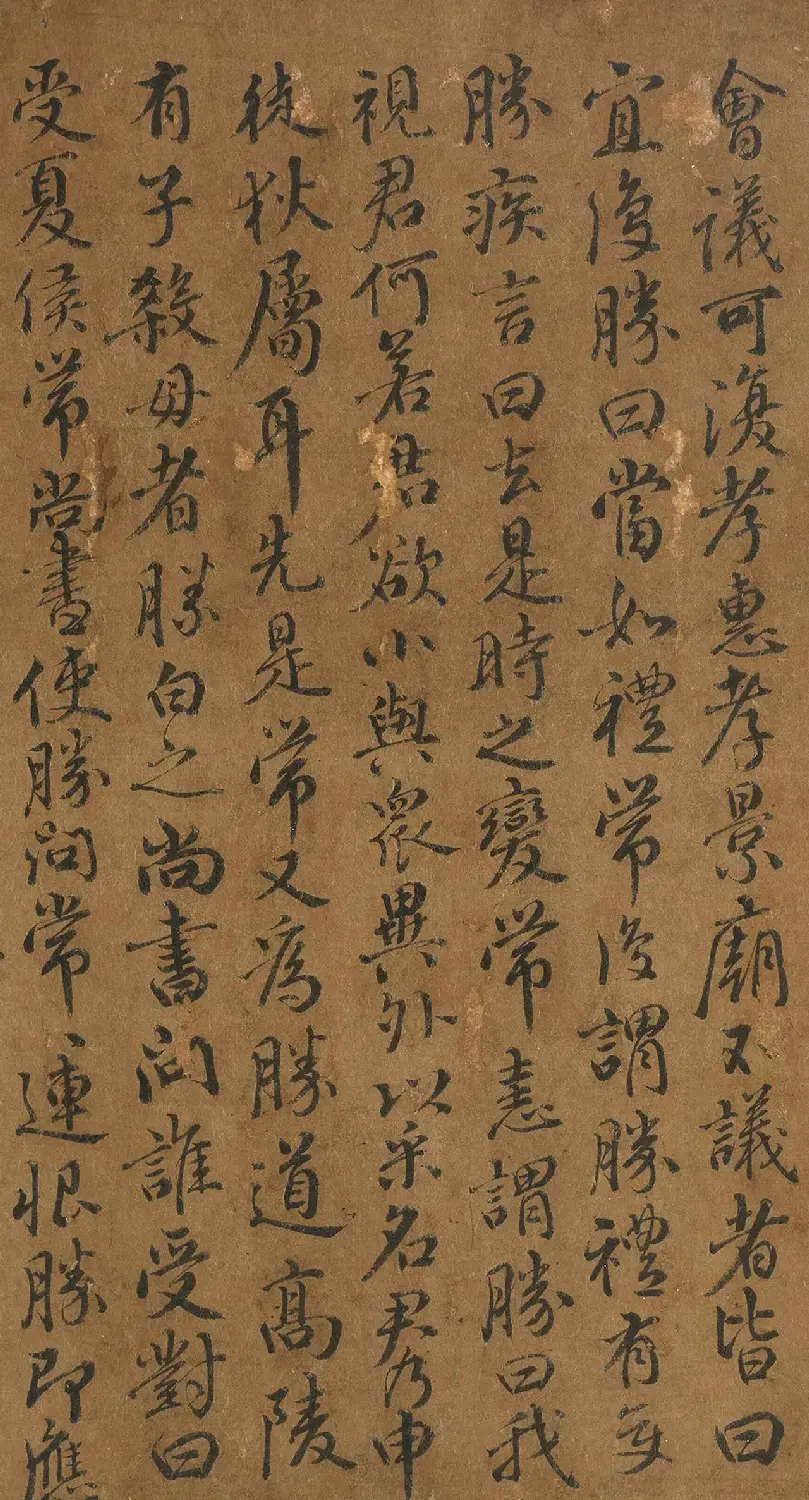 會議可復孝惠孝景廟不議者皆曰
宜復勝曰當如禮常復謂勝禮有變
勝疾言曰去是時之變常恚謂勝曰我
視君何若君欲小與眾異外以采名君乃申
徒狄屬耳先是常又為勝道高陵
有子殺母者勝白之尚書問誰受對曰
受夏侯常尚書使勝問常、連恨勝即應